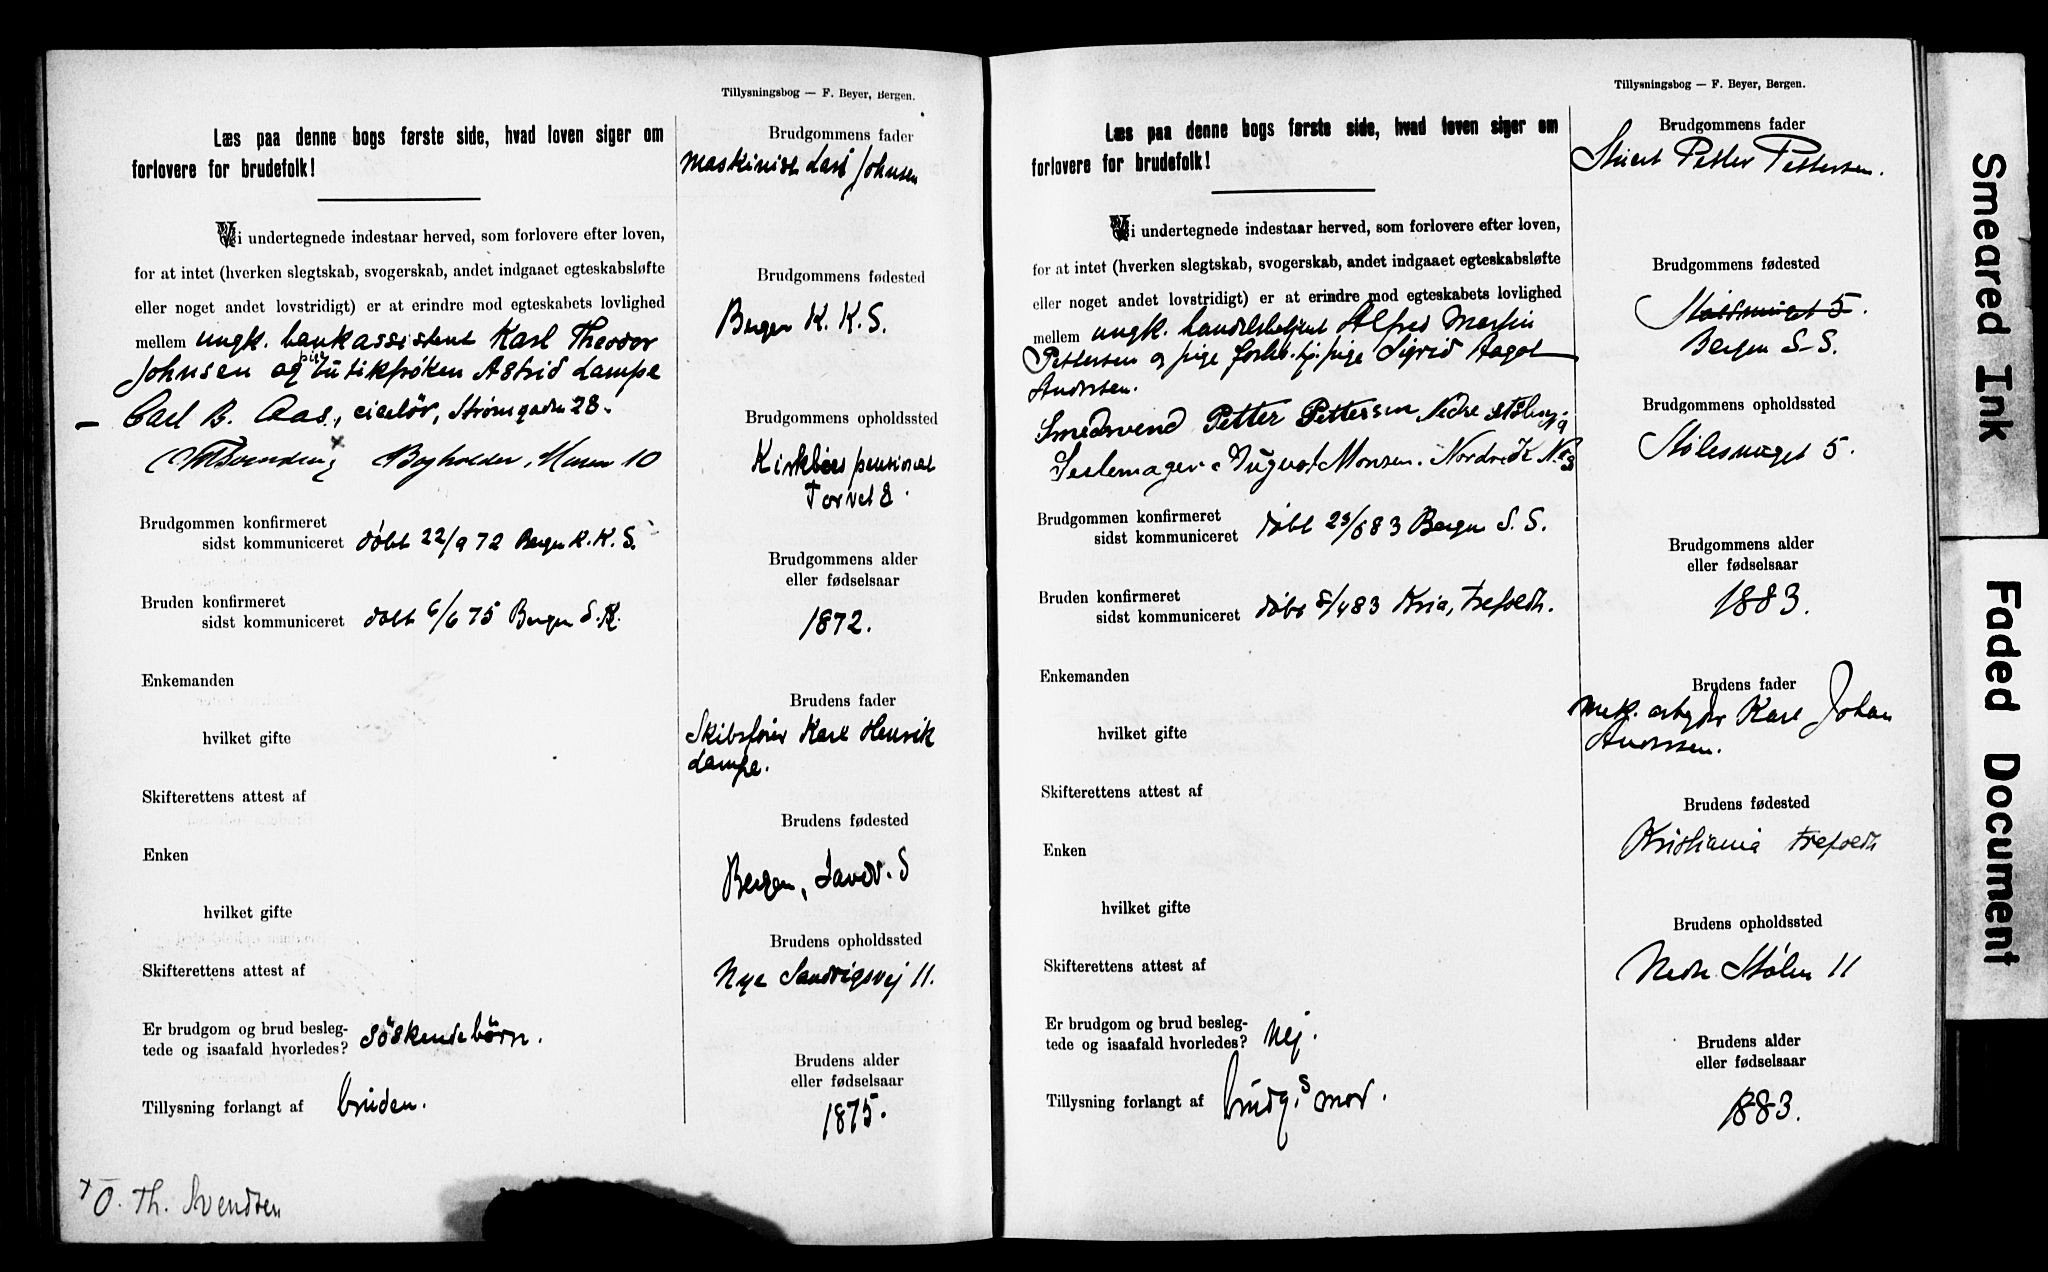 Tillysningsbog — F. Beyer, Bergen.
Læs paa denne bogs første side, hvad loven siger om
forlovere for brudefolk!
Vi undertegnede indestaar herved, som forlovere efter loven,
for at intet (hverken slegtskab, svogerskab, andet indgaaet egteskabsløfte
eller noget andet lovstridigt) er at erindre mod egteskabets lovlighed
mellem ungk. bankassistent Karl Theodor
Johnsen og pige butikfrøken Astrid Lampe
Carl B. Aas, ciselør, Strømgaden 28.
Bogholder, Musen 10
Brudgommen konfirmeret
sidst kommuniceret døbt 22/9 72 Bergen K. K. S.
Bruden konfirmeret
sidst kommuniceret døbt 6/6 75 Bergen S. K.
Enkemanden
hvilket gifte
Skifterettens attest af
Enken
hvilket gifte
Skifterettens attest af
Er brudgom og brud besleg-
tede og isaafald hvorledes? søskendebørn.
Tillysning forlangt af bruden.
O. Th. Svendsen
Brudgommens fader
Maskinist Lars Johnsen
Brudgommens fødested
Bergen K. K. S.
Brudgommens opholdssted
Kirkbies pensionat
Torvet 8.
Brudgommens alder
eller fødselsaar
1872.
Brudens fader
Skibsfører Karl Henrik
Lampe.
Brudens fødested
Bergen, Sandv. S
Brudens opholdssted
Nye Sandvigsvej 11.
Brudens alder
eller fødselsaar
1875.
Tillysningsbog — F. Beyer, Bergen.
Læs paa denne bogs første side, hvad loven siger om
forlovere for brudefolk!
Vi undertegnede indestaar herved, som forlovere efter loven,
for at intet (hverken slegtskab, svogerskab, andet indgaaet egteskabsløfte
eller noget andet lovstridigt) er at erindre mod egteskabets lovlighed
mellem ungk. handelsbetjent Alfred Martin
Pettersen og pige forh. tj. pige Sigrid Aagot
Anderssen.
Smedsvend Petter Pettersen Nedre Stølen
Seilemager Ingvat Monsen. Nordre K No 3
Brudgommen konfirmeret
sidst kommuniceret døbt 23/6 83 Bergen S. S.
Bruden konfirmeret
sidst kommuniceret døbt 8/4 83 Kria, Trefoldh.
Enkemanden
hvilket gifte
Skifterettens attest af
Enken
hvilket gifte
Skifterettens attest af
Er brudgom og brud besleg-
tede og isaafald hvorledes? Nej.
Tillysning forlangt af brudg.s mor.
Brudgommens fader
Stuert Petter Pettersen.
Brudgommens fødested
Bergen S-S.
Brudgommens opholdssted
Stølesmuget 5.
Brudgommens alder
eller fødselsaar
1883.
Brudens fader
Mek. arbejder Karl Johan
Anderssen.
Brudens fødested
Kristiania Trefoldh
Brudens opholdssted
Nedre Stølen 11
Brudens alder
eller fødselsaar
1883.
Smeared Ink
Faded Document